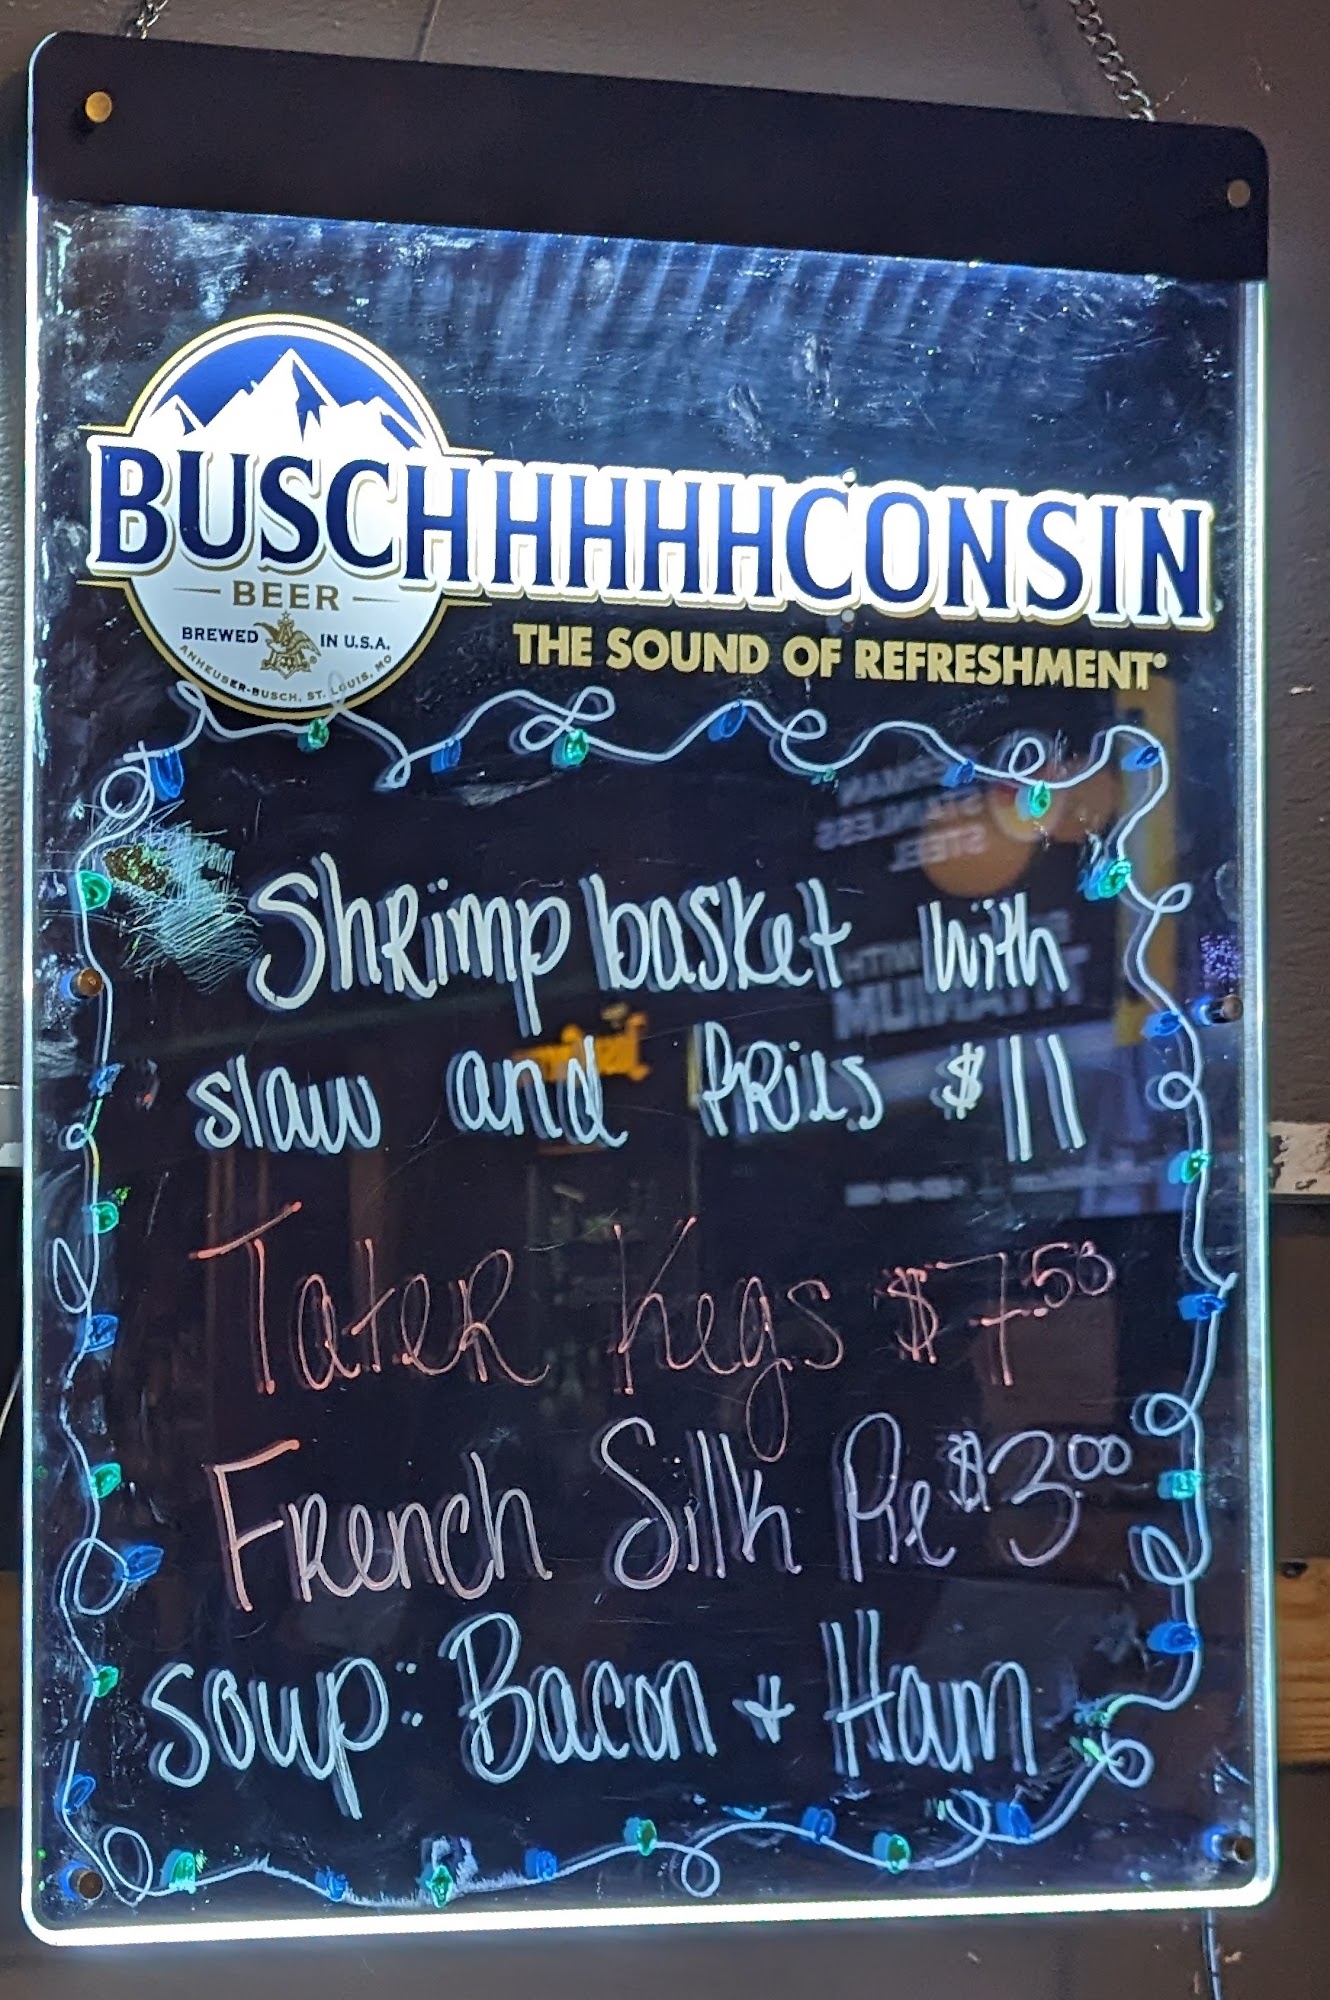 BUSCHHHHHCONSIN
BEER
BREWED IN U.S.A.
ANHEUSER-BUSCH, ST. LOUIS, MO
THE SOUND OF REFRESHMENT®
GERMAN
STAINLESS
STEEL
WITH
TITANIUM
Shrimp basket with
slaw and fries $11
Tater Kegs $7.50
French Silk Pie $3.00
soup: Bacon + Ham